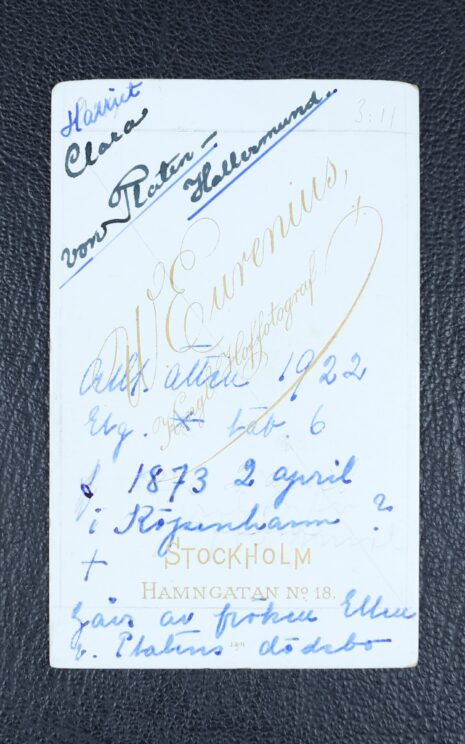 Harriet
3:11
Clara
von Platen-
Hallermund.
W. Eurenius,
Kongl. Hoffotograf
ätten 1922
tab. 6
f 1873 2 april
i Köpenhamn ?
+
STOCKHOLM
HAMNGATAN No 18.
av fröken Ellen
v. Platens dödsbo